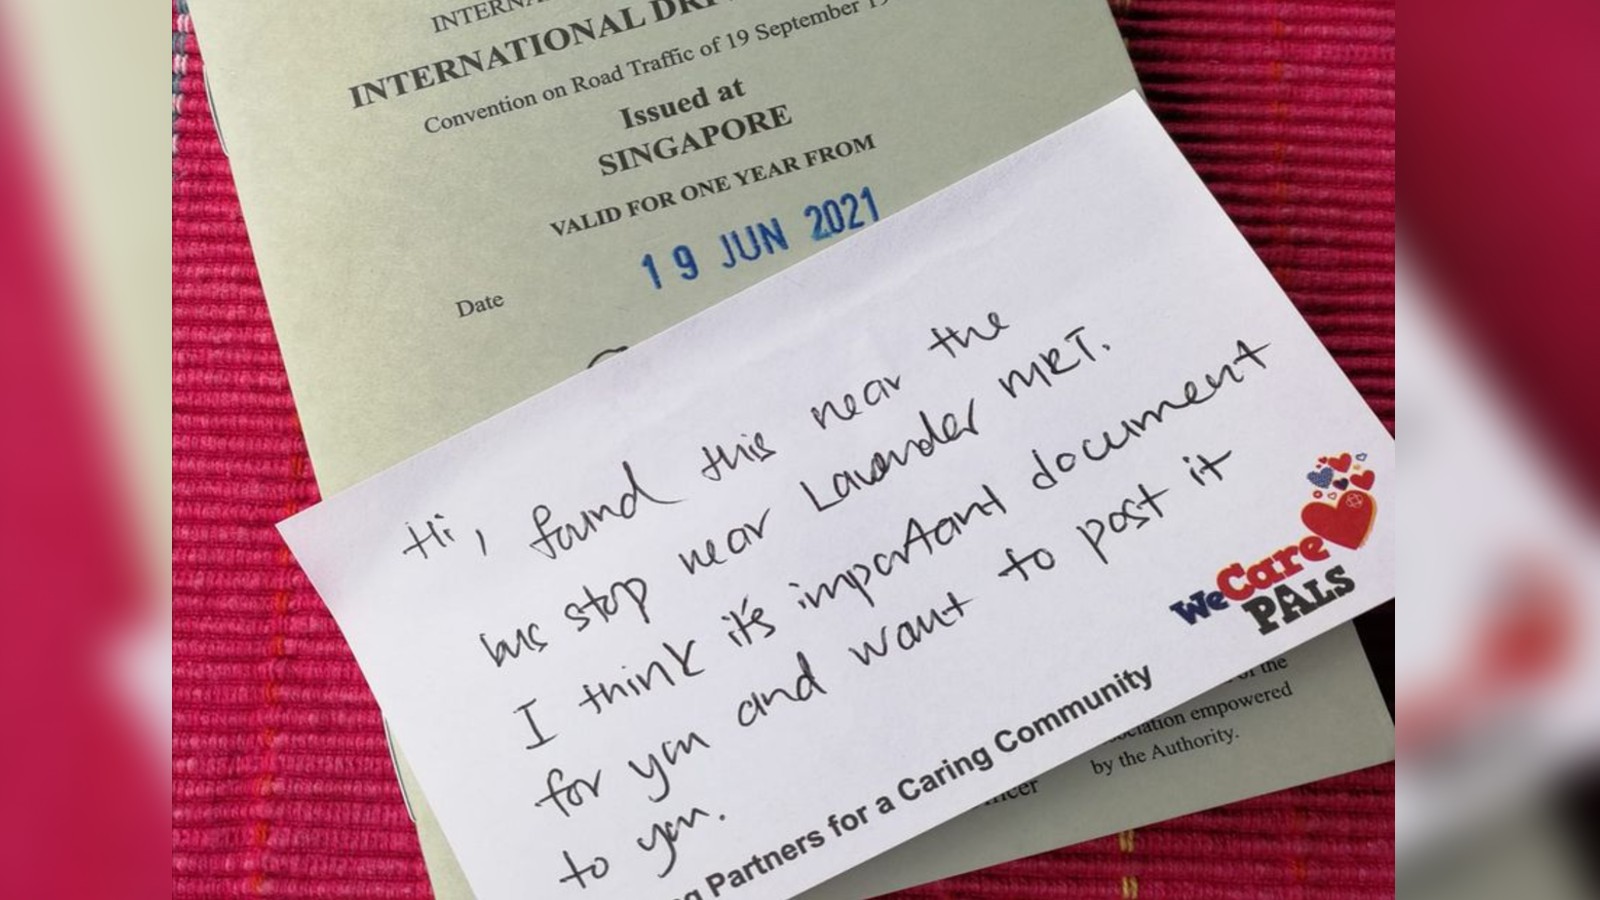 INTERNA
INTERNATIONAL DRI
Convention on Road Traffic of 19 September 19
Issued at
SINGAPORE
VALID FOR ONE YEAR FROM
19 JUN 2021
Date
Hi, found this near the
bus stop near Lavender MRT.
I think it's important document
for you and want to post it
to you.
WeCare
PALS
ng Partners for a Caring Community
of the
ociation empowered
by the Authority.
icer